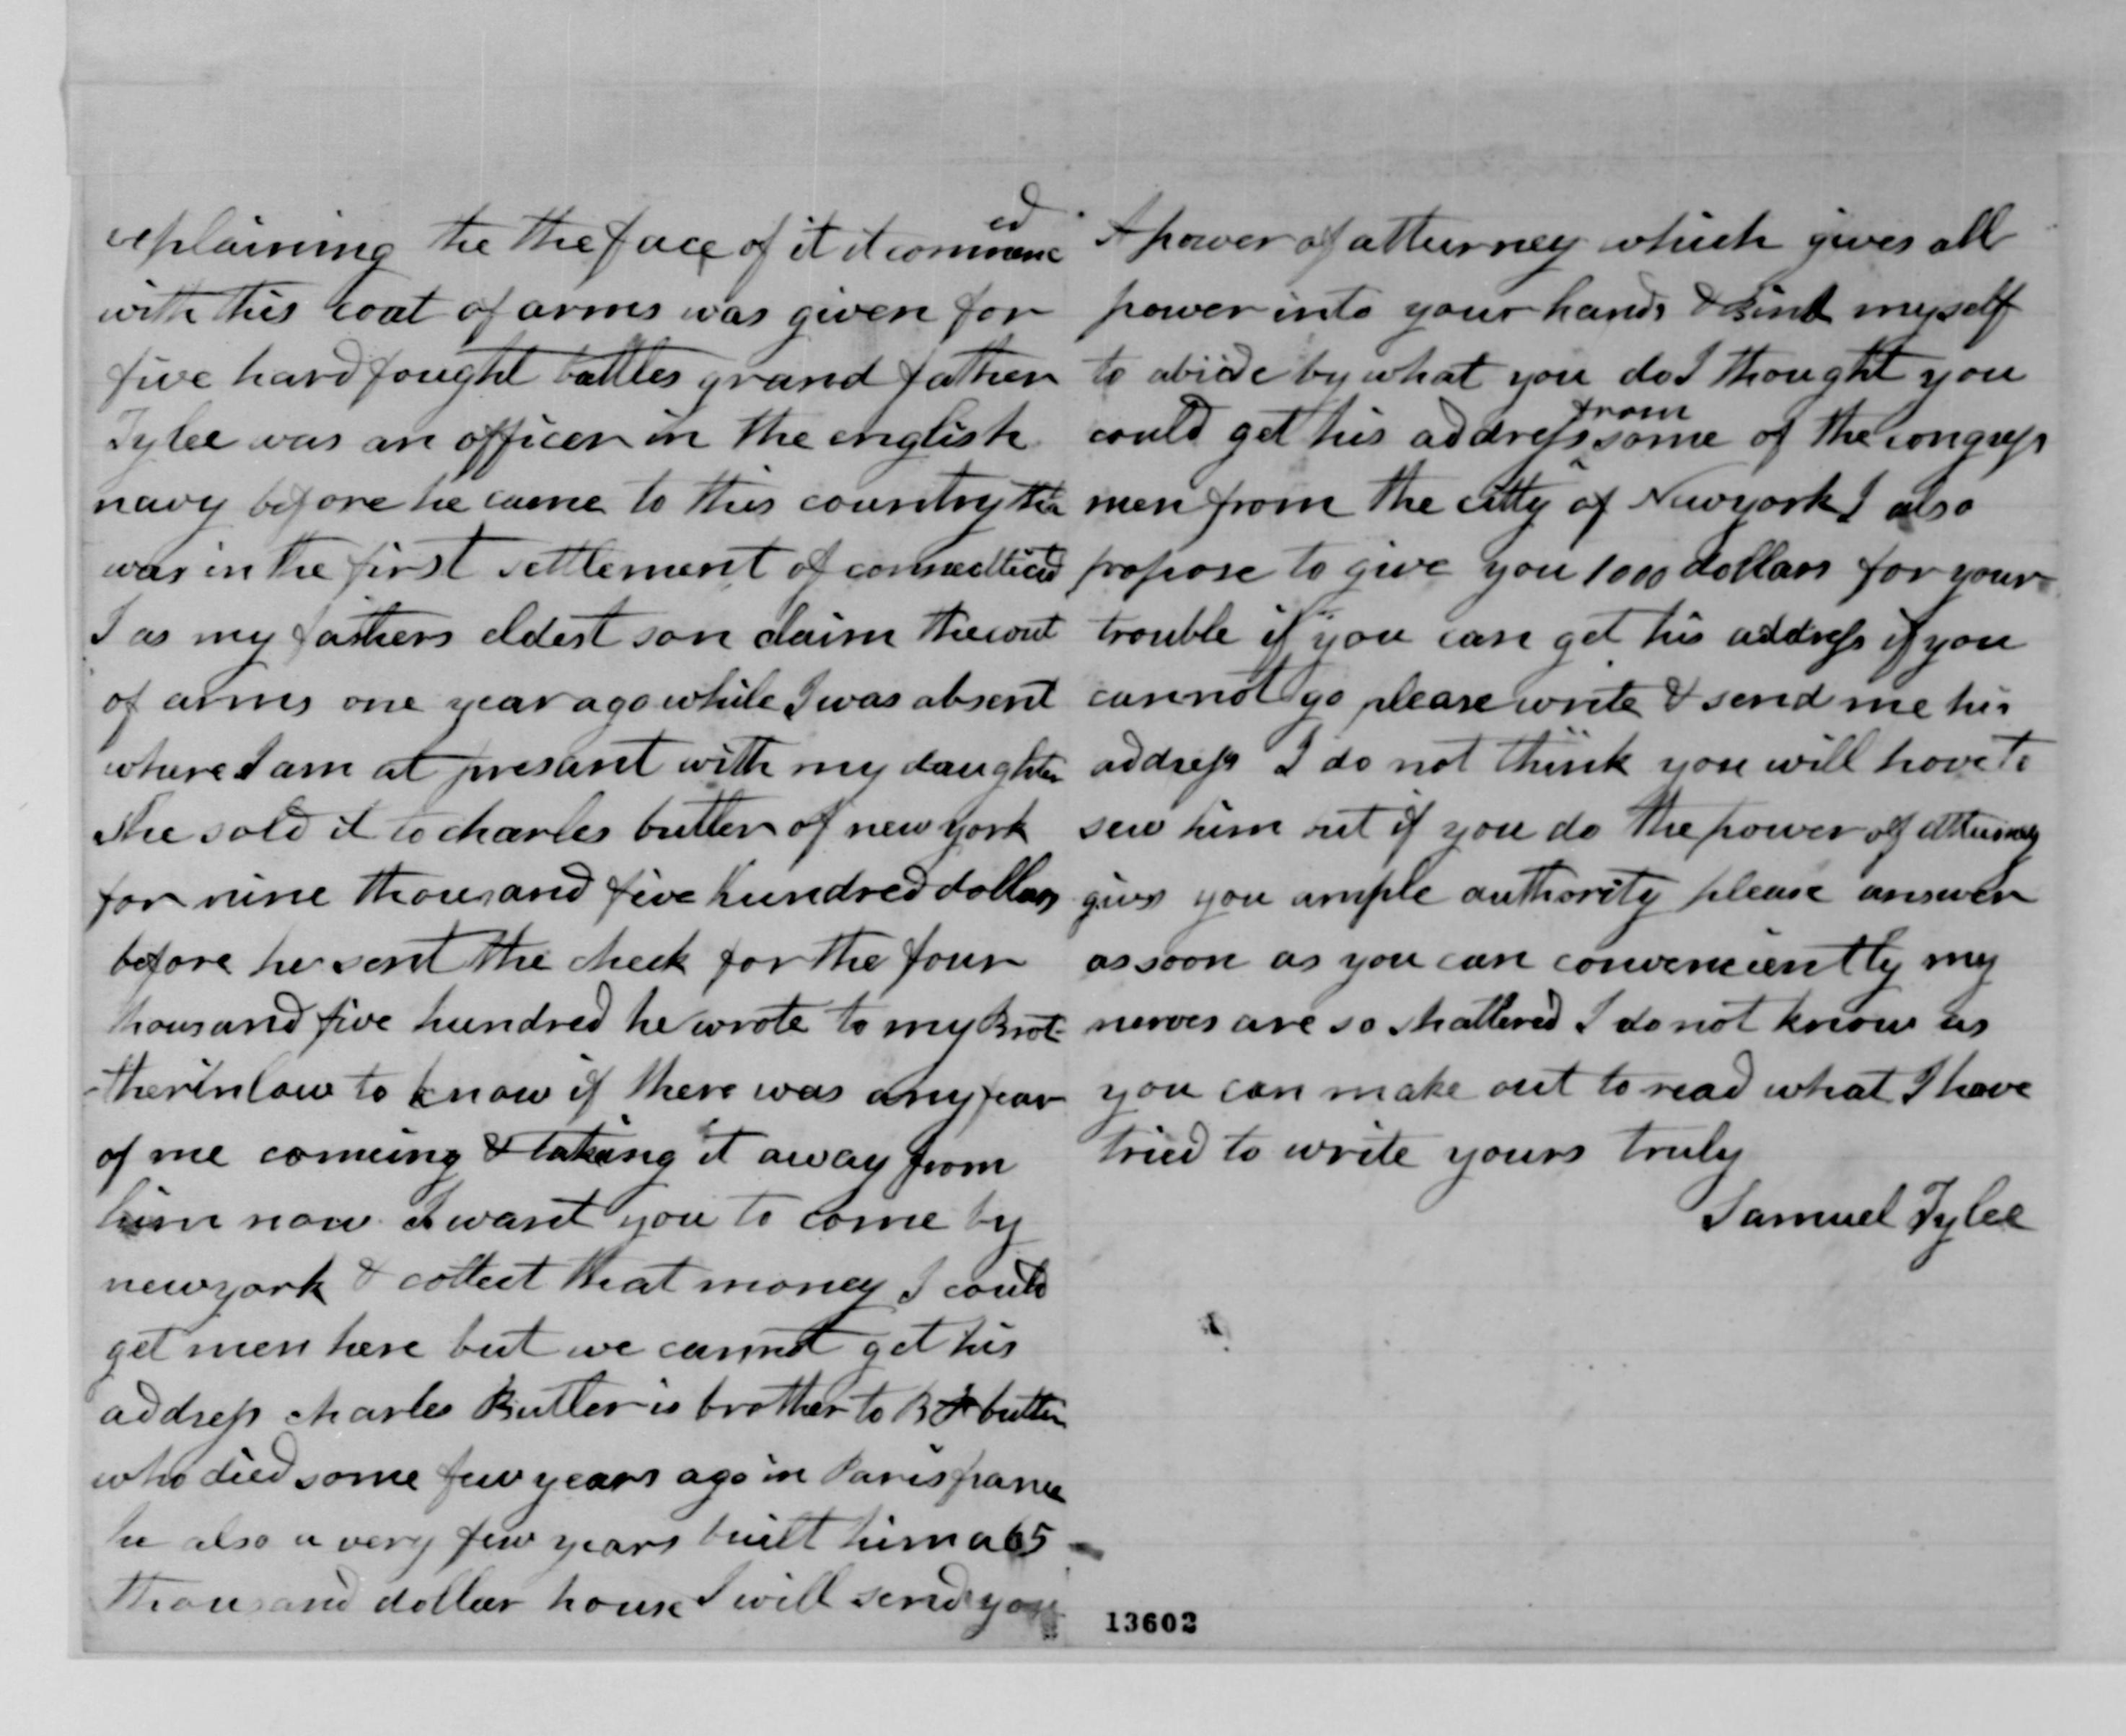 explaining the the face of it it commenc ed
with this coat of arms was given for
five hard fought battles grand father
Tylee was an officer in the english
navy before he came to this country this
was in the first settlement of
I as my fathers eldest son claim the coat
of arms one year ago while I was absent
where I am at presant with my daughter
She sold it to charles butler of new york
for nine thousand five hundred dollars
before he sent the check for the four
thousand five hundred he wrote to my Brot
-therinlaw to know if there was any fear
of me comeing & takeing it away from
him now I want you to come by
newyork & collect that money I could
get men here but we cannot get his
address charles Butler is brother to B F butler
who died some few years ago in Paris france
he also a very few years built him a 65
thousand dollar house I will send you
A power of atturney which gives all
power into your hands & bind myself
to abide by what you do I thought you
could get his address from some of the congress
men from the citty of Newyork I also
propose to give you 1000 dollars for your
trouble if you can get his address if you
cannot go please write & send me his
address I do not think you will have to
sew him but if you do the power of atturney
gives you ample authority please answer
as soon as you can conveneiently my
nerves are so shattered I do not know as
you can make out to read what I have
tried to write yours truly
Samuel Tylee
13602